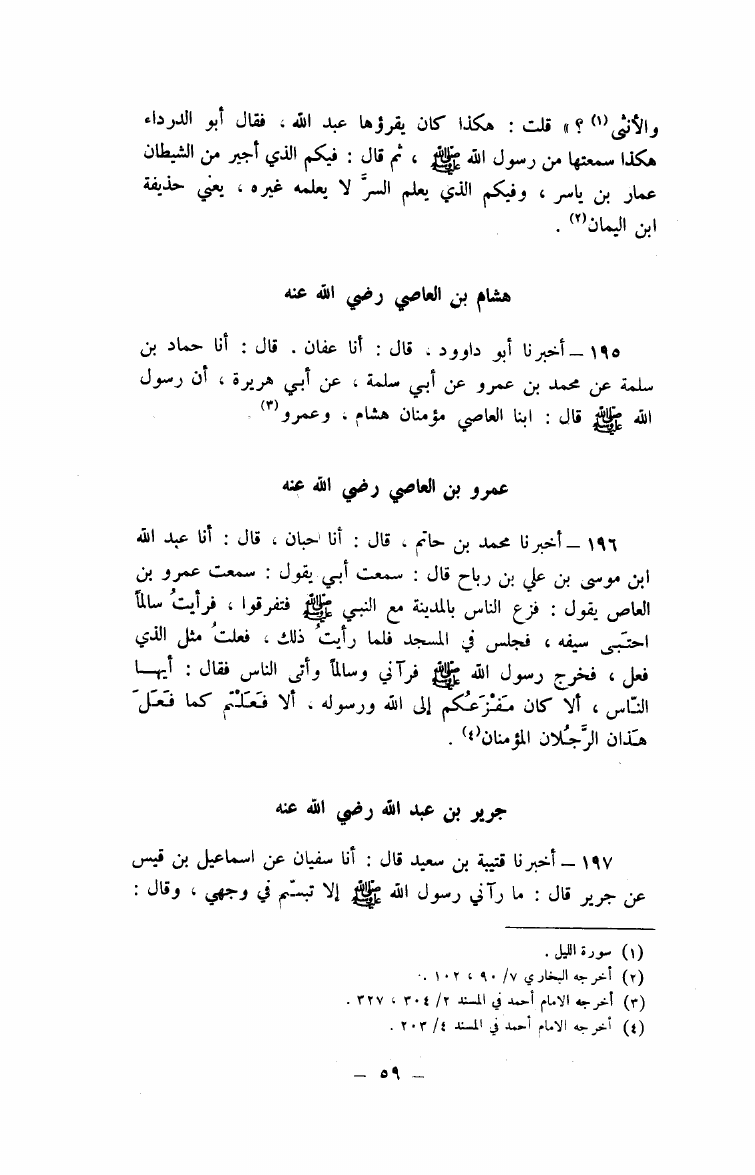 والأنثى(١) ؟ » قلت : هكذا كان يقرؤها عبد الله ، فقال أبو الدرداء
هكذا سمعتها من رسول الله ﷺ ، ثم قال : فيكم الذي أجير من الشيطان
عمار بن ياسر ، وفيكم الذي يعلم السرَّ لا يعلمه غيره ، يعني حذيفة
ابن اليمان(٢) .
هشام بن العاصي رضي الله عنه
١٩٥ – أخبرنا أبو داوود ، قال : أنا عفان . قال : أنا حماد بن
سلمة عن محمد بن عمرو عن أبي سلمة ، عن أبي هريرة ، أن رسول
الله ﷺ قال : ابنا العاصي مؤمنان هشام ، وعمرو(٣) .
عمرو بن العاصي رضي الله عنه
١٩٦ – أخبرنا محمد بن حاتم ، قال : أنا حبان ، قال : أنا عبد الله
ابن موسى بن علي بن رباح قال : سمعت أبي يقول : سمعت عمرو بن
العاص يقول : فزع الناس بالمدينة مع النبي ﷺ فتفرقوا ، فرأيتُ سالماً
احتَبى سيفه ، فجلس في المسجد فلما رأيتُ ذلك ، فعلتُ مثل الذي
فعل ، فخرج رسول الله ﷺ فرآني وسالماً وأتى الناس فقال : أيهـا
النّاس ، ألا كان مَفْزَعُكم إلى الله ورسوله ، ألا فَعَلْتم كما فَعَلَ
هَذان الرَّجُلان المؤمنان(٤) .
جرير بن عبد الله رضي الله عنه
١٩٧ – أخبرنا قتيبة بن سعيد قال : أنا سفيان عن اسماعيل بن قيس
عن جرير قال : ما رآني رسول الله ﷺ إلا تبسّم في وجهي ، وقال :
(١) سورة الليل .
(٢) أخرجه البخاري ٧/ ٩٠ ، ١٠٢ .
(٣) أخرجه الامام أحمد في المسند ٢/ ٣٠٤ ، ٣٢٧ .
(٤) أخرجه الامام أحمد في المسند ٤/ ٢٠٣ .
– ٥٩ –